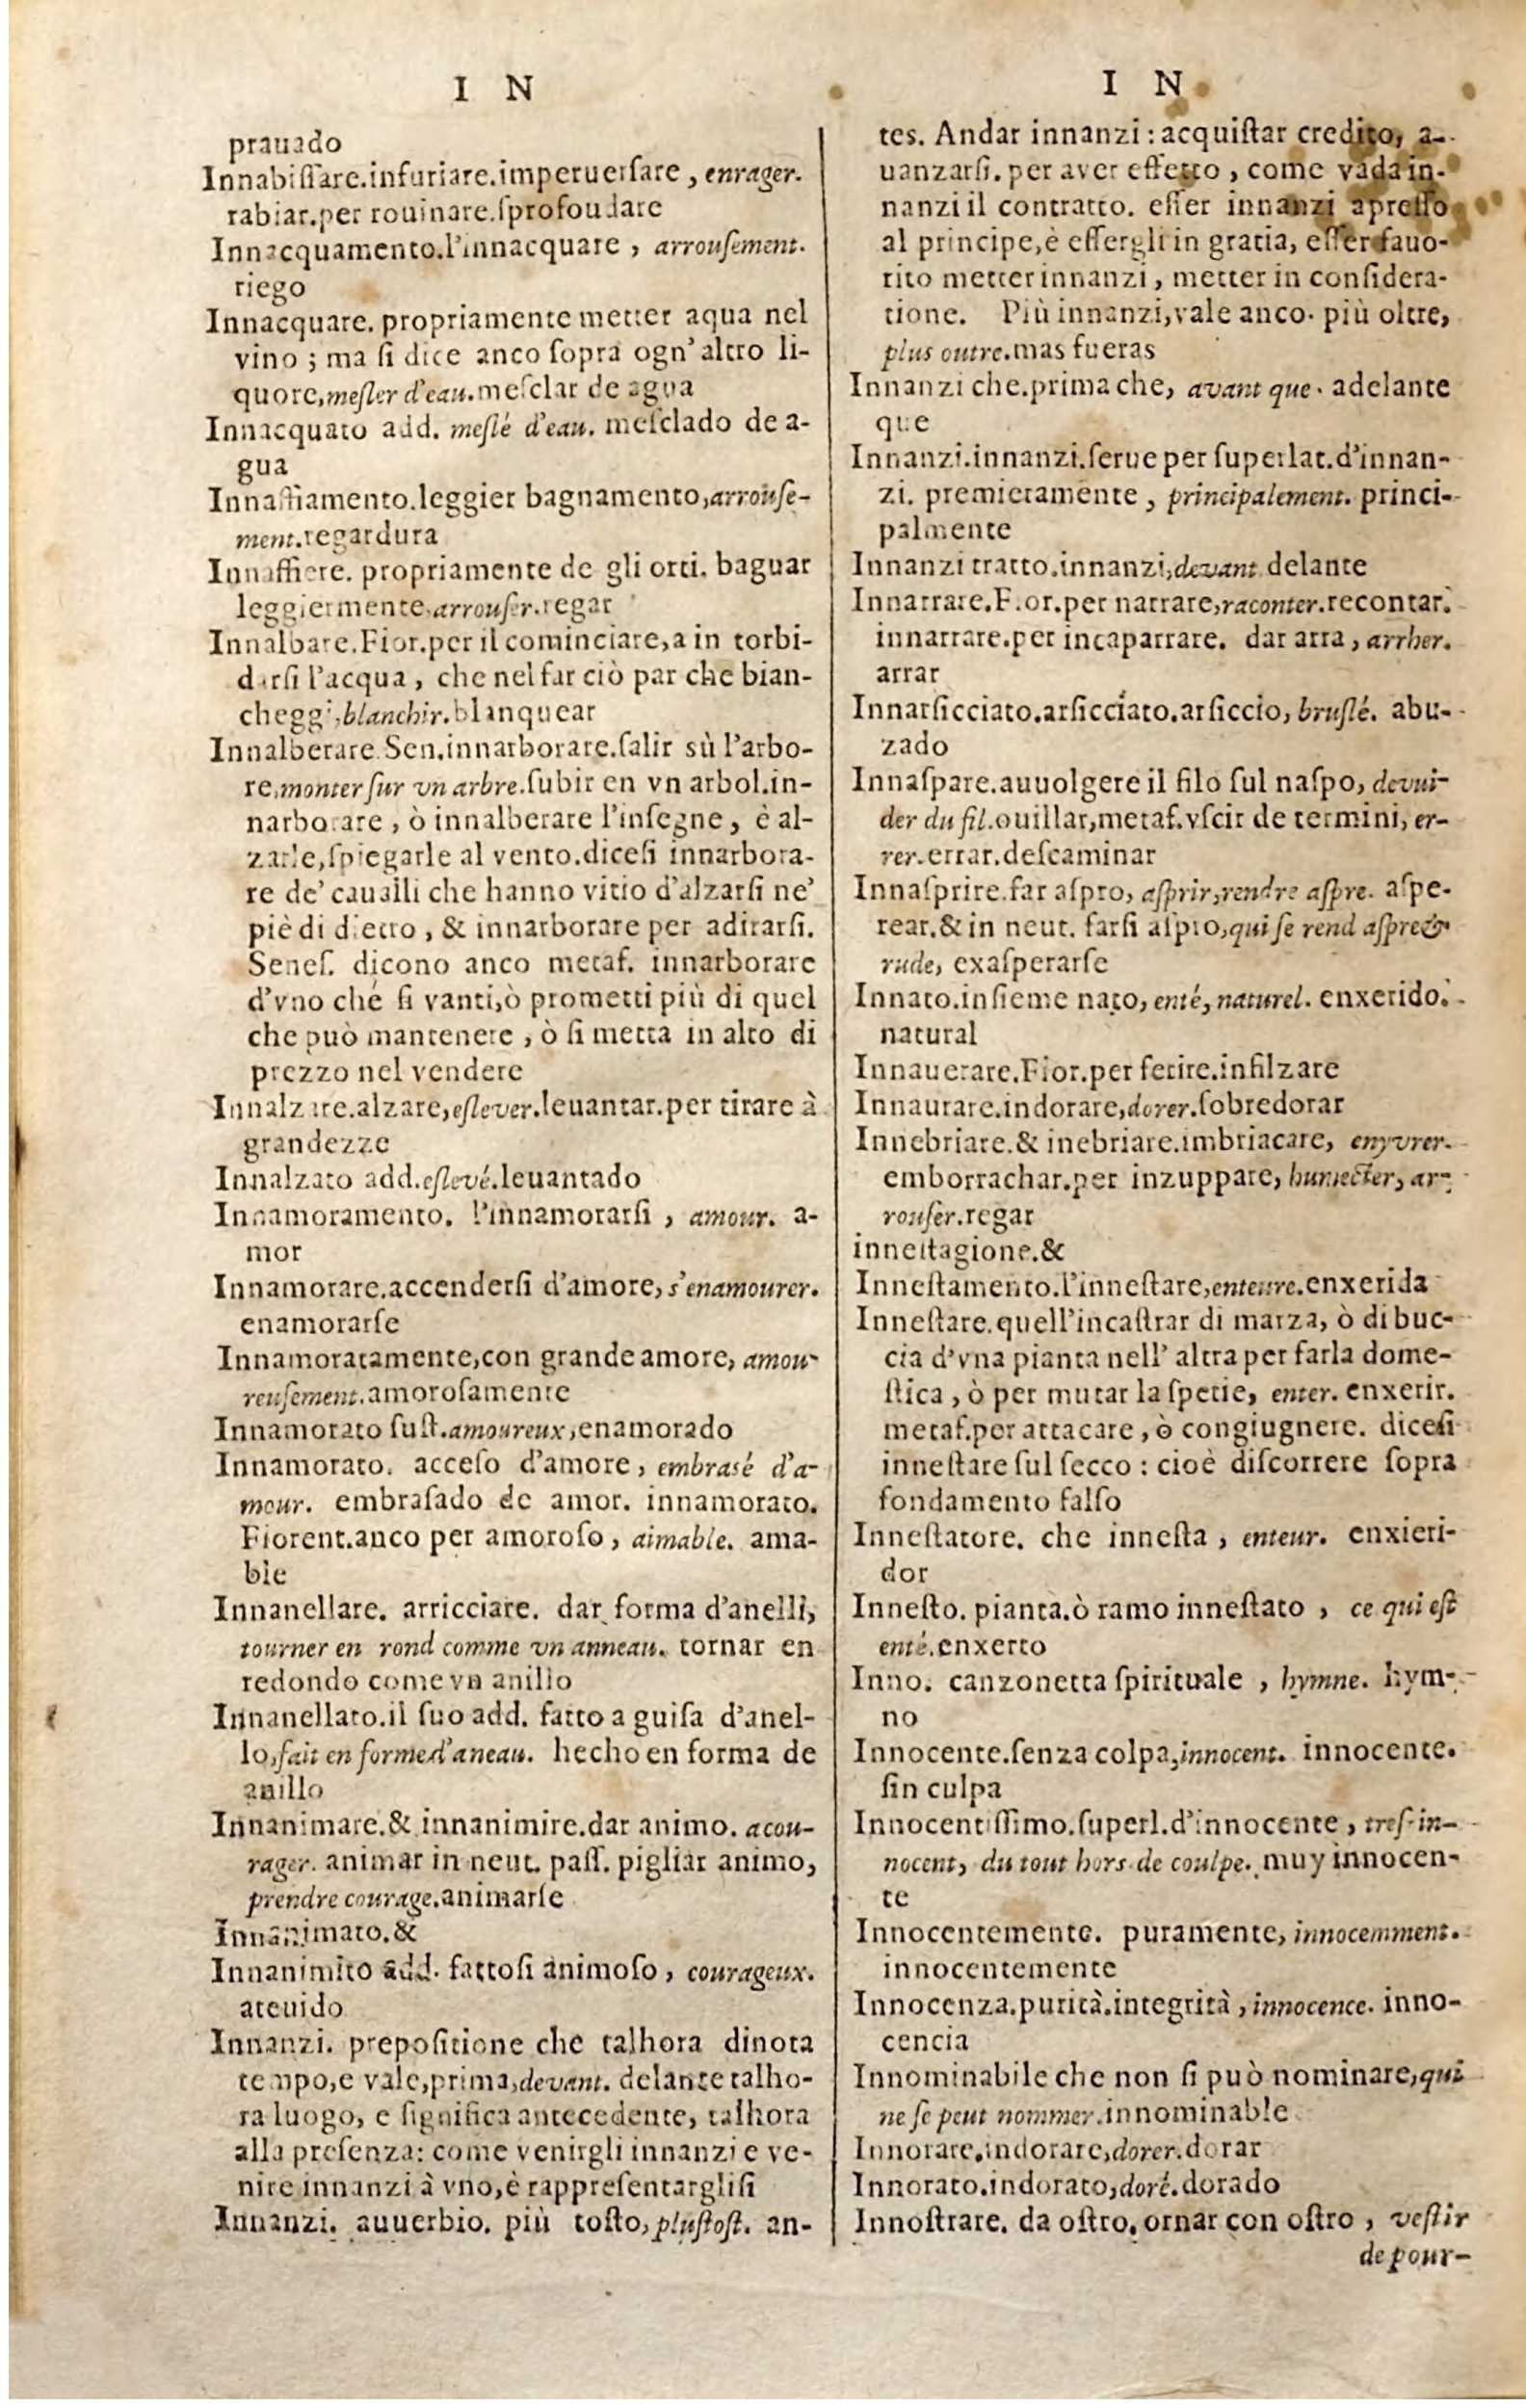 I N
prauado
Innabiſſare.infuriare.imperuerſare, enrager.
rabiar.per rouinare.ſprofoudare
Innacquamento.l'innacquare, arrouſement.
riego
Innacquare. propriamente metter aqua nel
vino; ma ſi dice anco ſopra ogn' altro li-
quore,meſler d'eau.meſclar de agua
Innacquato add. meſlé d'eau. meſclado de a-
gua
Innaffiamento.leggier bagnamento,arrouſe-
ment.regardura
Innaffiere. propriamente de gli orti. baguar
leggiermente.arrouſer.regar
Innalbare.Fior.per il cominciare,a in torbi-
darſi l'acqua, che nel far ciò par che bian-
cheggi,blanchir.blanquear
Innalberare Sen.innarborare.ſalir sù l'arbo-
re,monter ſur vn arbre.ſubir en vn arbol.in-
narborare, ò innalberare l'inſegne, è al-
zarle,ſpiegarle al vento.diceſi innarbora-
re de' caualli che hanno vitio d'alzarſi ne'
piè di dietro, & innarborare per adirarſi.
Seneſ. dicono anco metaf. innarborare
d'vno che ſi vanti,ò prometti più di quel
che può mantenere, ò ſi metta in alto di
prezzo nel vendere
Innalzare.alzare,eſlever.leuantar.per tirare à
grandezze
Innalzato add.eſlevé.leuantado
Innamoramento. l'innamorarſi, amour. a-
mor
Innamorare.accenderſi d'amore, s'enamourer.
enamorarſe
Innamoratamente,con grande amore, amou-
reuſement.amoroſamente
Innamorato ſuſt.amoureux,enamorado
Innamorato. acceſo d'amore, embrasé d'a-
mour. embraſado de amor. innamorato.
Fiorent.anco per amoroſo, aimable. ama-
ble
Innanellare. arricciare. dar forma d'anelli,
tourner en rond comme vn anneau. tornar en
redondo come vn anillo
Innanellato.il ſuo add. fatto a guiſa d'anel-
lo,fait en forme d'aneau. hecho en forma de
anillo
Innanimare.& innanimire.dar animo. acou-
rager. animar in neut. paſſ. pigliar animo,
prendre courage.animarſe
Innanimato.&
Innanimito add. fattoſi animoſo, courageux.
ateuido
Innanzi. prepoſitione che talhora dinota
tempo,e vale,prima,devant. delante talho-
ra luogo, e ſignifica antecedente, talhora
alla preſenza: come venirgli innanzi e ve-
nire innanzi à vno,è rappreſentarglisi
Innanzi. auuerbio. più toſto,pluſtoſt. an-
I N
tes. Andar innanzi: acquiſtar credito, a-
uanzarſi. per aver effetto, come vada in-
nanzi il contratto. eſſer innanzi apreſſo
al principe,è eſſergli in gratia, eſſer fauo-
rito metter innanzi, metter in conſidera-
tione. Più innanzi,vale anco. più oltre,
plus outre.mas fueras
Innanzi che.prima che, avant que. adelante
que
Innanzi.innanzi.ſerue per ſuperlat.d'innan-
zi. premieramente, principalement. princi-
palmente
Innanzi tratto.innanzi,devant delante
Innarrare.Fior.per narrare,raconter.recontar.
innarrare.per incaparrare. dar arra, arrher.
arrar
Innarſicciato.arſicciato.arſiccio, bruſlé. abu-
zado
Innaſpare.auuolgere il filo ſul naſpo, devui-
der du fil.ouillar,metaf.vſcir de termini, er-
rer.errar.deſcaminar
Innaſprire.far aſpro, aſprir,rendre aſpre. aſpe-
rear.& in neut. farſi aſpro,qui ſe rend aſpre &
rude, exaſperarſe
Innato.inſieme nato, enté, naturel. enxerido.
natural
Innauerare.Fior.per ferire.infilzare
Innaurare.indorare,dorer.ſobredorar
Innebriare.& inebriare.imbriacare, enyvrer.
emborrachar.per inzuppare, humecter, ar-
rouſer.regar
inneſtagione.&
Inneſtamento.l'inneſtare,enteure.enxerida
Inneſtare.quell'incaſtrar di marza, ò di buc-
cia d'vna pianta nell' altra per farla dome-
ſtica, ò per mutar la ſpetie, enter. enxerir.
metaf.per attacare, ò congiugnere. diceſi
inneſtare ſul ſecco: cioè diſcorrere ſopra
fondamento falſo
Inneſtatore. che inneſta, enteur. enxieri-
dor
Inneſto. pianta.ò ramo inneſtato, ce qui eſt
enté.enxerto
Inno. canzonetta ſpirituale, hymne. hym-
no
Innocente.ſenza colpa,innocent. innocente.
ſin culpa
Innocentiſſimo.ſuperl.d'innocente, treſ-in-
nocent, du tout hors de coulpe. muy innocen-
te
Innocentemente. puramente, innocemment.
innocentemente
Innocenza.purità.integrità, innocence. inno-
cencia
Innominabile che non ſi può nominare,qui
ne ſe peut nommer.innominable
Innorare.indorare,dorer.dorar
Innorato.indorato,doré.dorado
Innoſtrare. da oſtro. ornar con oſtro, veſtir
de pour-